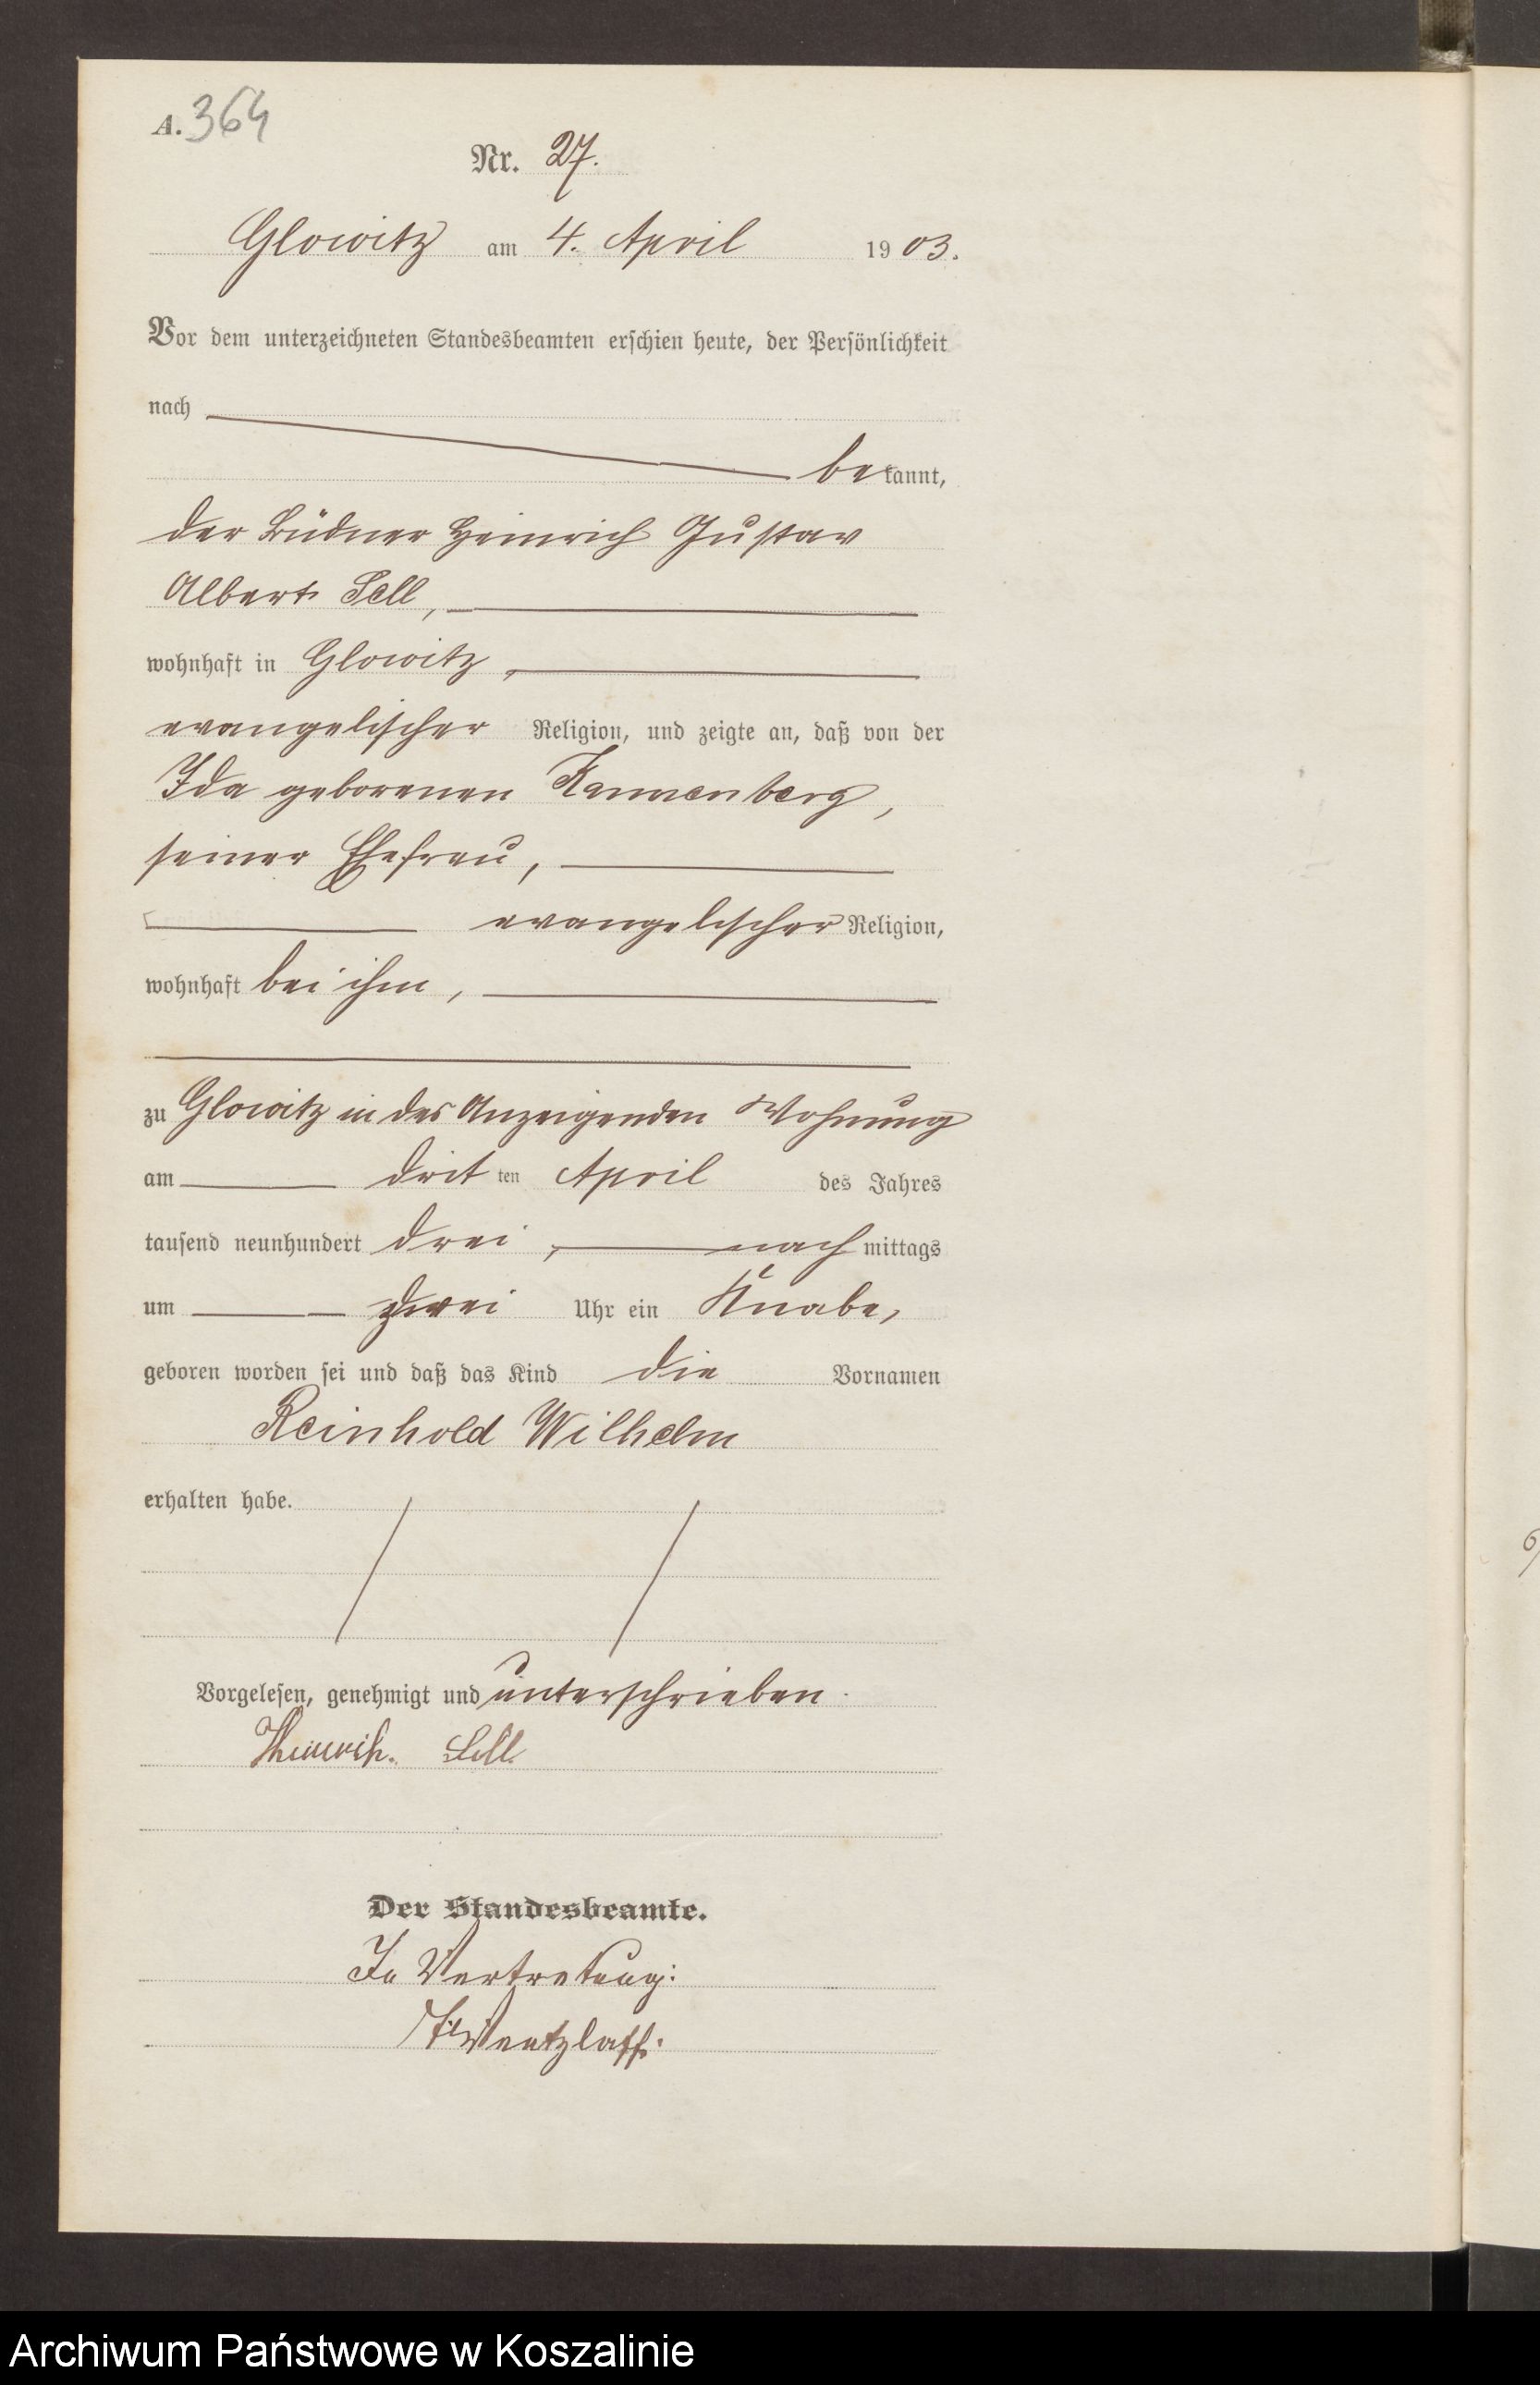 A. 364
Nr. 27.
Glowitz am 4. April 1903.
Vor dem unterzeichneten Standesbeamten erschien heute, der Persönlichkeit
nach
bekannt,
der Büdner Heinrich Gustav
Albert Sell,
wohnhaft in Glowitz,
evangelischer Religion, und zeigte an, daß von der
Ida geborenen Kannenberg,
seiner Ehefrau,
evangelischer Religion,
wohnhaft bei ihm,
zu Glowitz in des Anzeigenden Wohnung
am dritten April des Jahres
tausend neunhundert drei, nachmittags
um zwei Uhr ein Knabe,
geboren worden sei und daß das Kind die Vornamen
Reinhold Wilhelm
erhalten habe.
Vorgelesen, genehmigt und unterschrieben.
Heinrich. Sell.
Der Standesbeamte.
In Vertretung:
Wentzlaff.
Archiwum Państwowe w Koszalinie